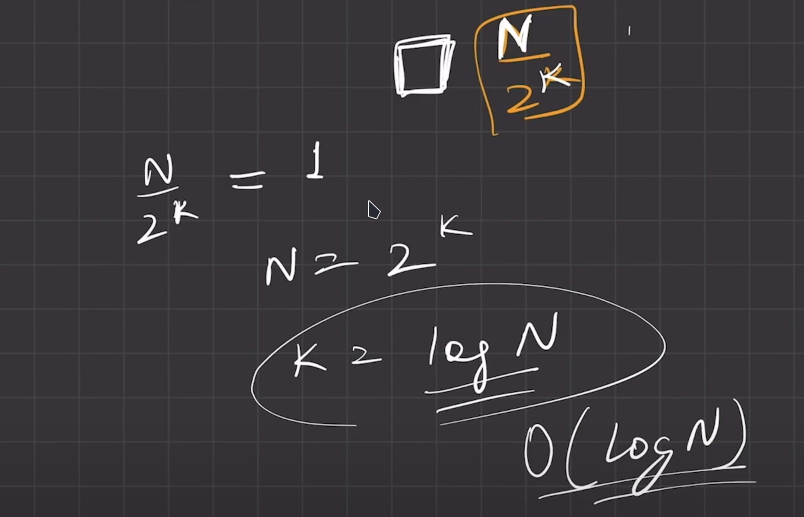 N/2^K
N/2^K = 1
N = 2^K
K = log N
O(log N)